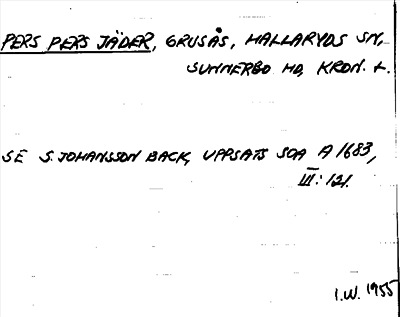 PERS PERS JÄDER, GRUSÅS, HALLARYDS SN,
SUNNERBO HD, KRON. L.
SE S. JOHANSSON BACK, UPPSATS SOA A 1683,
III: 121.
I.W. 1955